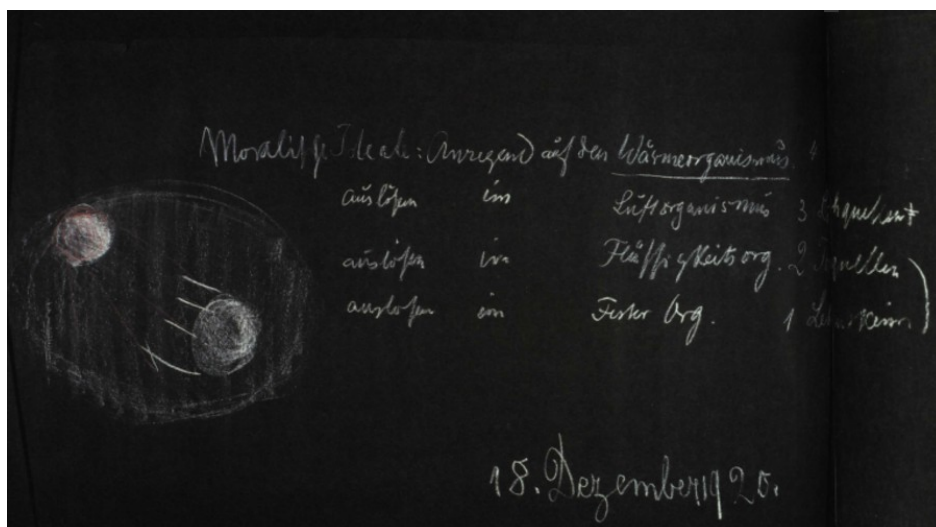 Moralische Ideale: Anregend auf den Wärmeorganismus. 4
auslösen im Luftorganismus 3
auslösen im Flüssigkeitsorg. 2
auslösen im Fester Org. 1
18. Dezember 1920.